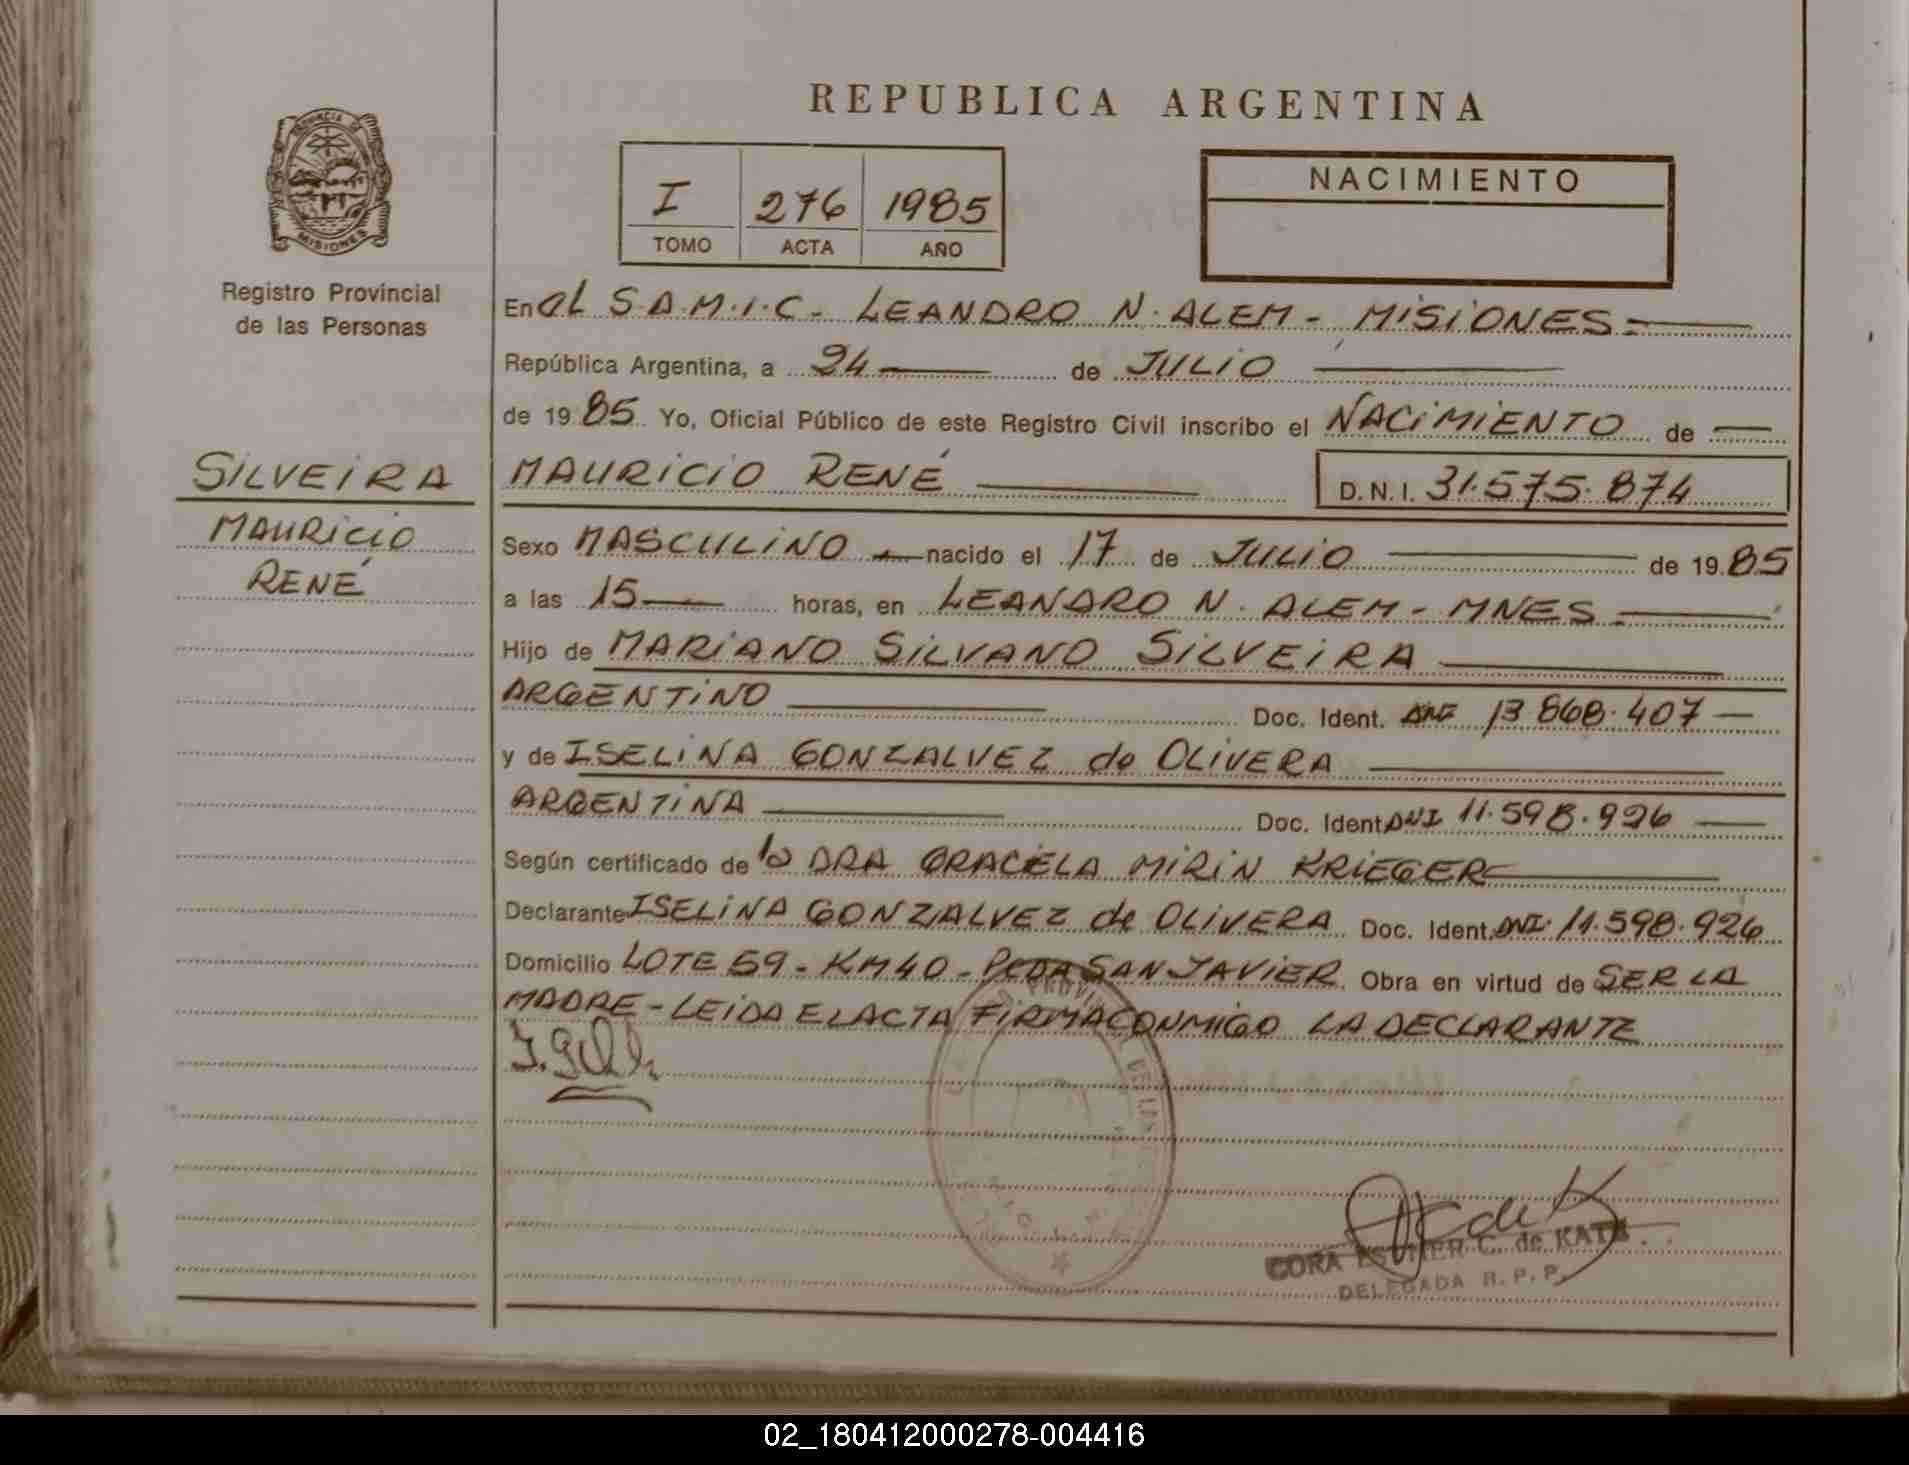 REPUBLICA ARGENTINA
PROVINCIA DE
MISIONES
Registro Provincial
de las Personas
I 276 1985
TOMO ACTA AÑO
NACIMIENTO
En el S.A.M.I.C. LEANDRO N. ALEM - MISIONES.-
República Argentina, a 24 de JULIO
de 1985. Yo, Oficial Público de este Registro Civil inscribo el NACIMIENTO de
SILVEIRA
MAURICIO
RENÉ
MAURICIO RENÉ D.N.I. 31.575.874
Sexo MASCULINO nacido el 17 de JULIO de 1985
a las 15 horas, en LEANDRO N. ALEM - MNES.-
Hijo de MARIANO SILVANO SILVEIRA
ARGENTINO Doc. Ident. DNI 13.868.407
y de ISELINA GONZALVEZ de OLIVERA
ARGENTINA Doc. Ident. DNI 11.598.926
Según certificado de la DRA GRACIELA MIRIN KRIEGER
Declarante ISELINA GONZALVEZ de OLIVERA Doc. Ident. DNI. 11.598.926
Domicilio LOTE 59 - KM 40 - PCDA SAN JAVIER. Obra en virtud de SER LA
MADRE - LEIDA EL ACTA FIRMA CONMIGO LA DECLARANTE
CORA ESTHER C. de KATZ
DELEGADA R. P. P.
02_180412000278-004416